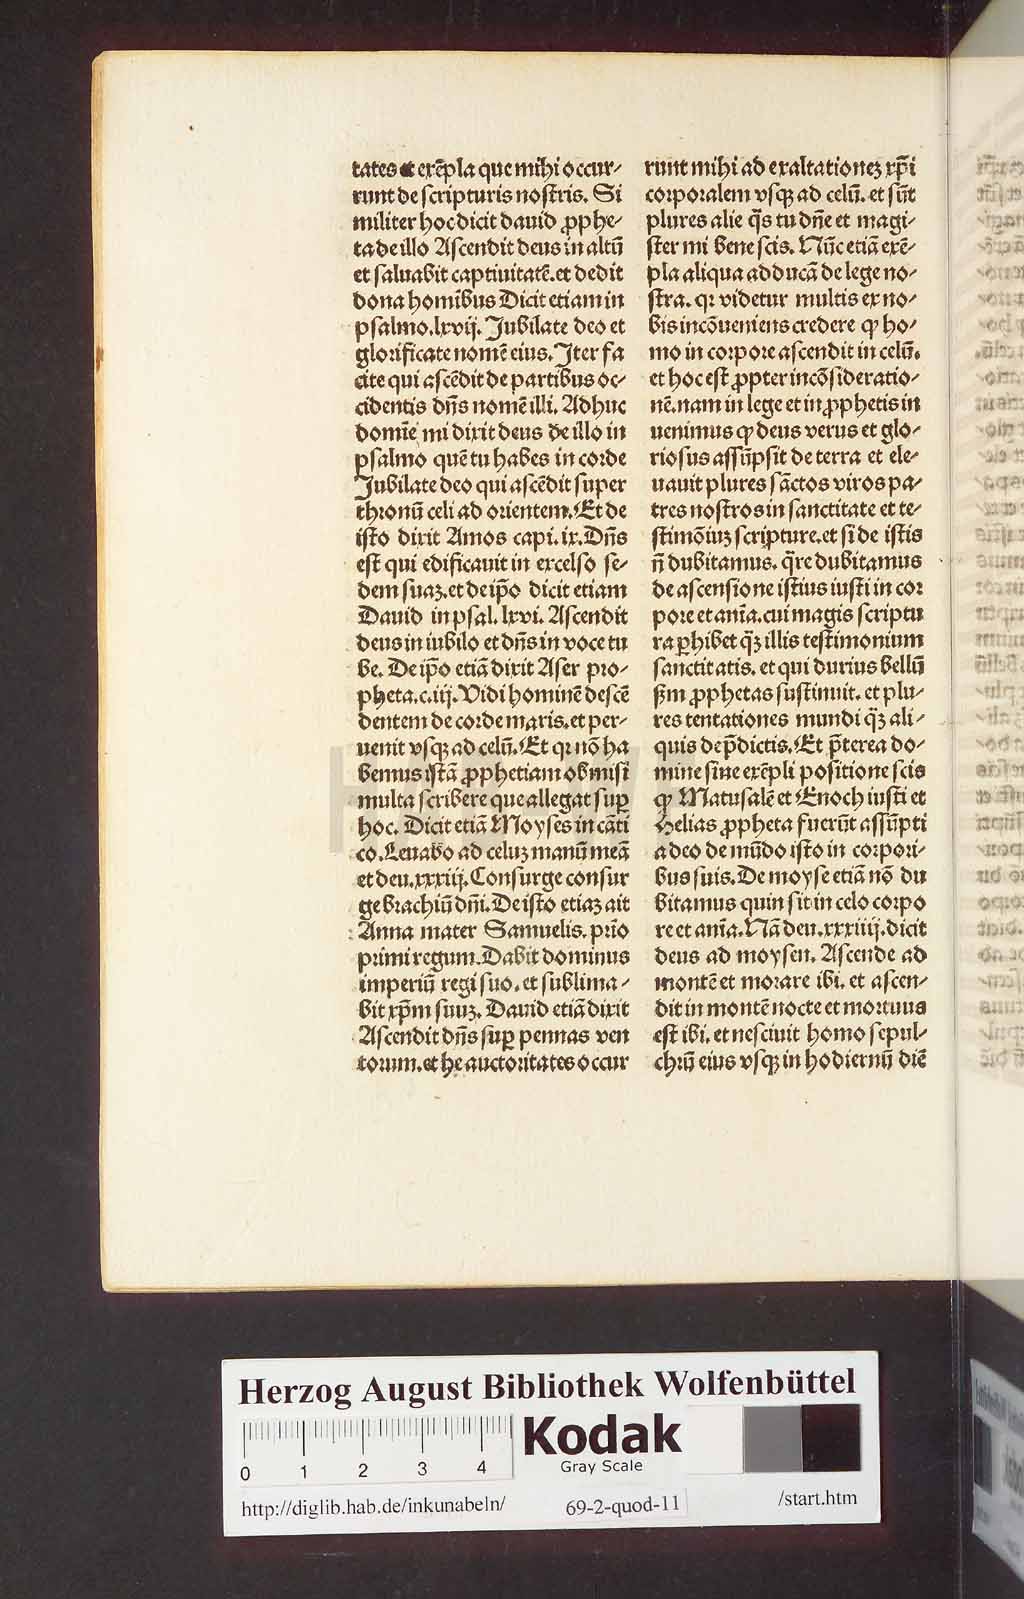 tates et exẽpla que mihi occur⸗
runt de scripturis nostris. Si
militer hoc dicit dauid ꝓphe⸗
ta de illo Ascendit deus in altũ
et saluabit captiuitatẽ. et dedit
dona hominibus Dicit etiam in
psalmo. lxvij. Jubilate deo et
glorificate nomẽ eius. Iter fa
cite qui ascẽdit de partibus oc⸗
cidentis dñs nomẽ illi. Adhuc
domĩe mi dixit deus de illo in
psalmo quẽ tu habes in corde
Jubilate deo qui ascẽdit super
thronũ celi ad orientem. Et de
isto dixit Amos capi. ix. Dñs
est qui edificauit in excelso se⸗
dem suaꝫ. et de ip̃o dicit etiam
Dauid in psal. lxvi. Ascendit
deus in iubilo et dñs in voce tu
be. De ip̃o etiã dixit Aser pro⸗
pheta. c. iij. Vidi hominẽ descẽ
dentem de corde maris. et per⸗
uenit vsqꝫ ad celũ. Et qꝛ nõ ha
bemus istã ꝓphetiam obmisi
multa scribere que allegat suꝑ
hoc. Dicit etiã Moyses in cãti
co. Leuabo ad celuꝫ manũ meã
et deu. xxxiij. Consurge consur
ge brachiũ dñi. De isto etiaꝫ ait
Anna mater Samuelis. prĩo
primi regum. Dabit dominus
imperiũ regi suo. et sublima⸗
bit xp̃m suuꝫ. Dauid etiã dixit
Ascendit dñs suꝑ pennas ven
torum. et he auctoritates occur
runt mihi ad exaltationeꝫ xp̃i
corporalem vsqꝫ ad celũ. et sũt
plures alie q̃s tu dñe et magi⸗
ster mi bene scis. Nũc etiã exẽ⸗
pla aliqua adducã de lege no⸗
stra. qꝛ videtur multis ex no⸗
bis incõueniens credere ꝙ ho⸗
mo in corpore ascendit in celũ.
et hoc est ꝓpter incõsideratio⸗
nẽ. nam in lege et in ꝓphetis in
uenimus ꝙ deus verus et glo⸗
riosus assũpsit de terra et ele⸗
uauit plures sãctos viros pa⸗
tres nostros in sanctitate et te⸗
stimõiuꝫ scripture. et si de istis
ñ dubitamus. q̃re dubitamus
de ascensione istius iusti in cor
pore et anĩa. cui magis scriptu
ra ꝑhibet q̃ꝫ illis testimonium
sanctitatis. et qui durius bellũ
ẜm ꝓphetas sustinuit. et plu⸗
res tentationes mundi q̃ꝫ ali⸗
quis de p̃dictis. Et p̃terea do⸗
mine sine exẽpli positione scis
ꝙ Matusalẽ et Enoch iusti et
Helias ꝓpheta fuerũt assũpti
a deo de mũdo isto in corpori⸗
bus suis. De moyse etiã nõ du
bitamus quin sit in celo corpo
re et anĩa. Nã deu. xxxiiij. dicit
deus ad moysen. Ascende ad
montẽ et morare ibi. et ascen⸗
dit in montẽ nocte et mortuus
est ibi. et nesciuit homo sepul⸗
chrũ eius vsqꝫ in hodiernũ diẽ
HAB
Herzog August Bibliothek Wolfenbüttel
0 1 2 3 4
Kodak
Gray Scale
http://diglib.hab.de/inkunabeln/ 69-2-quod-11 /start.htm